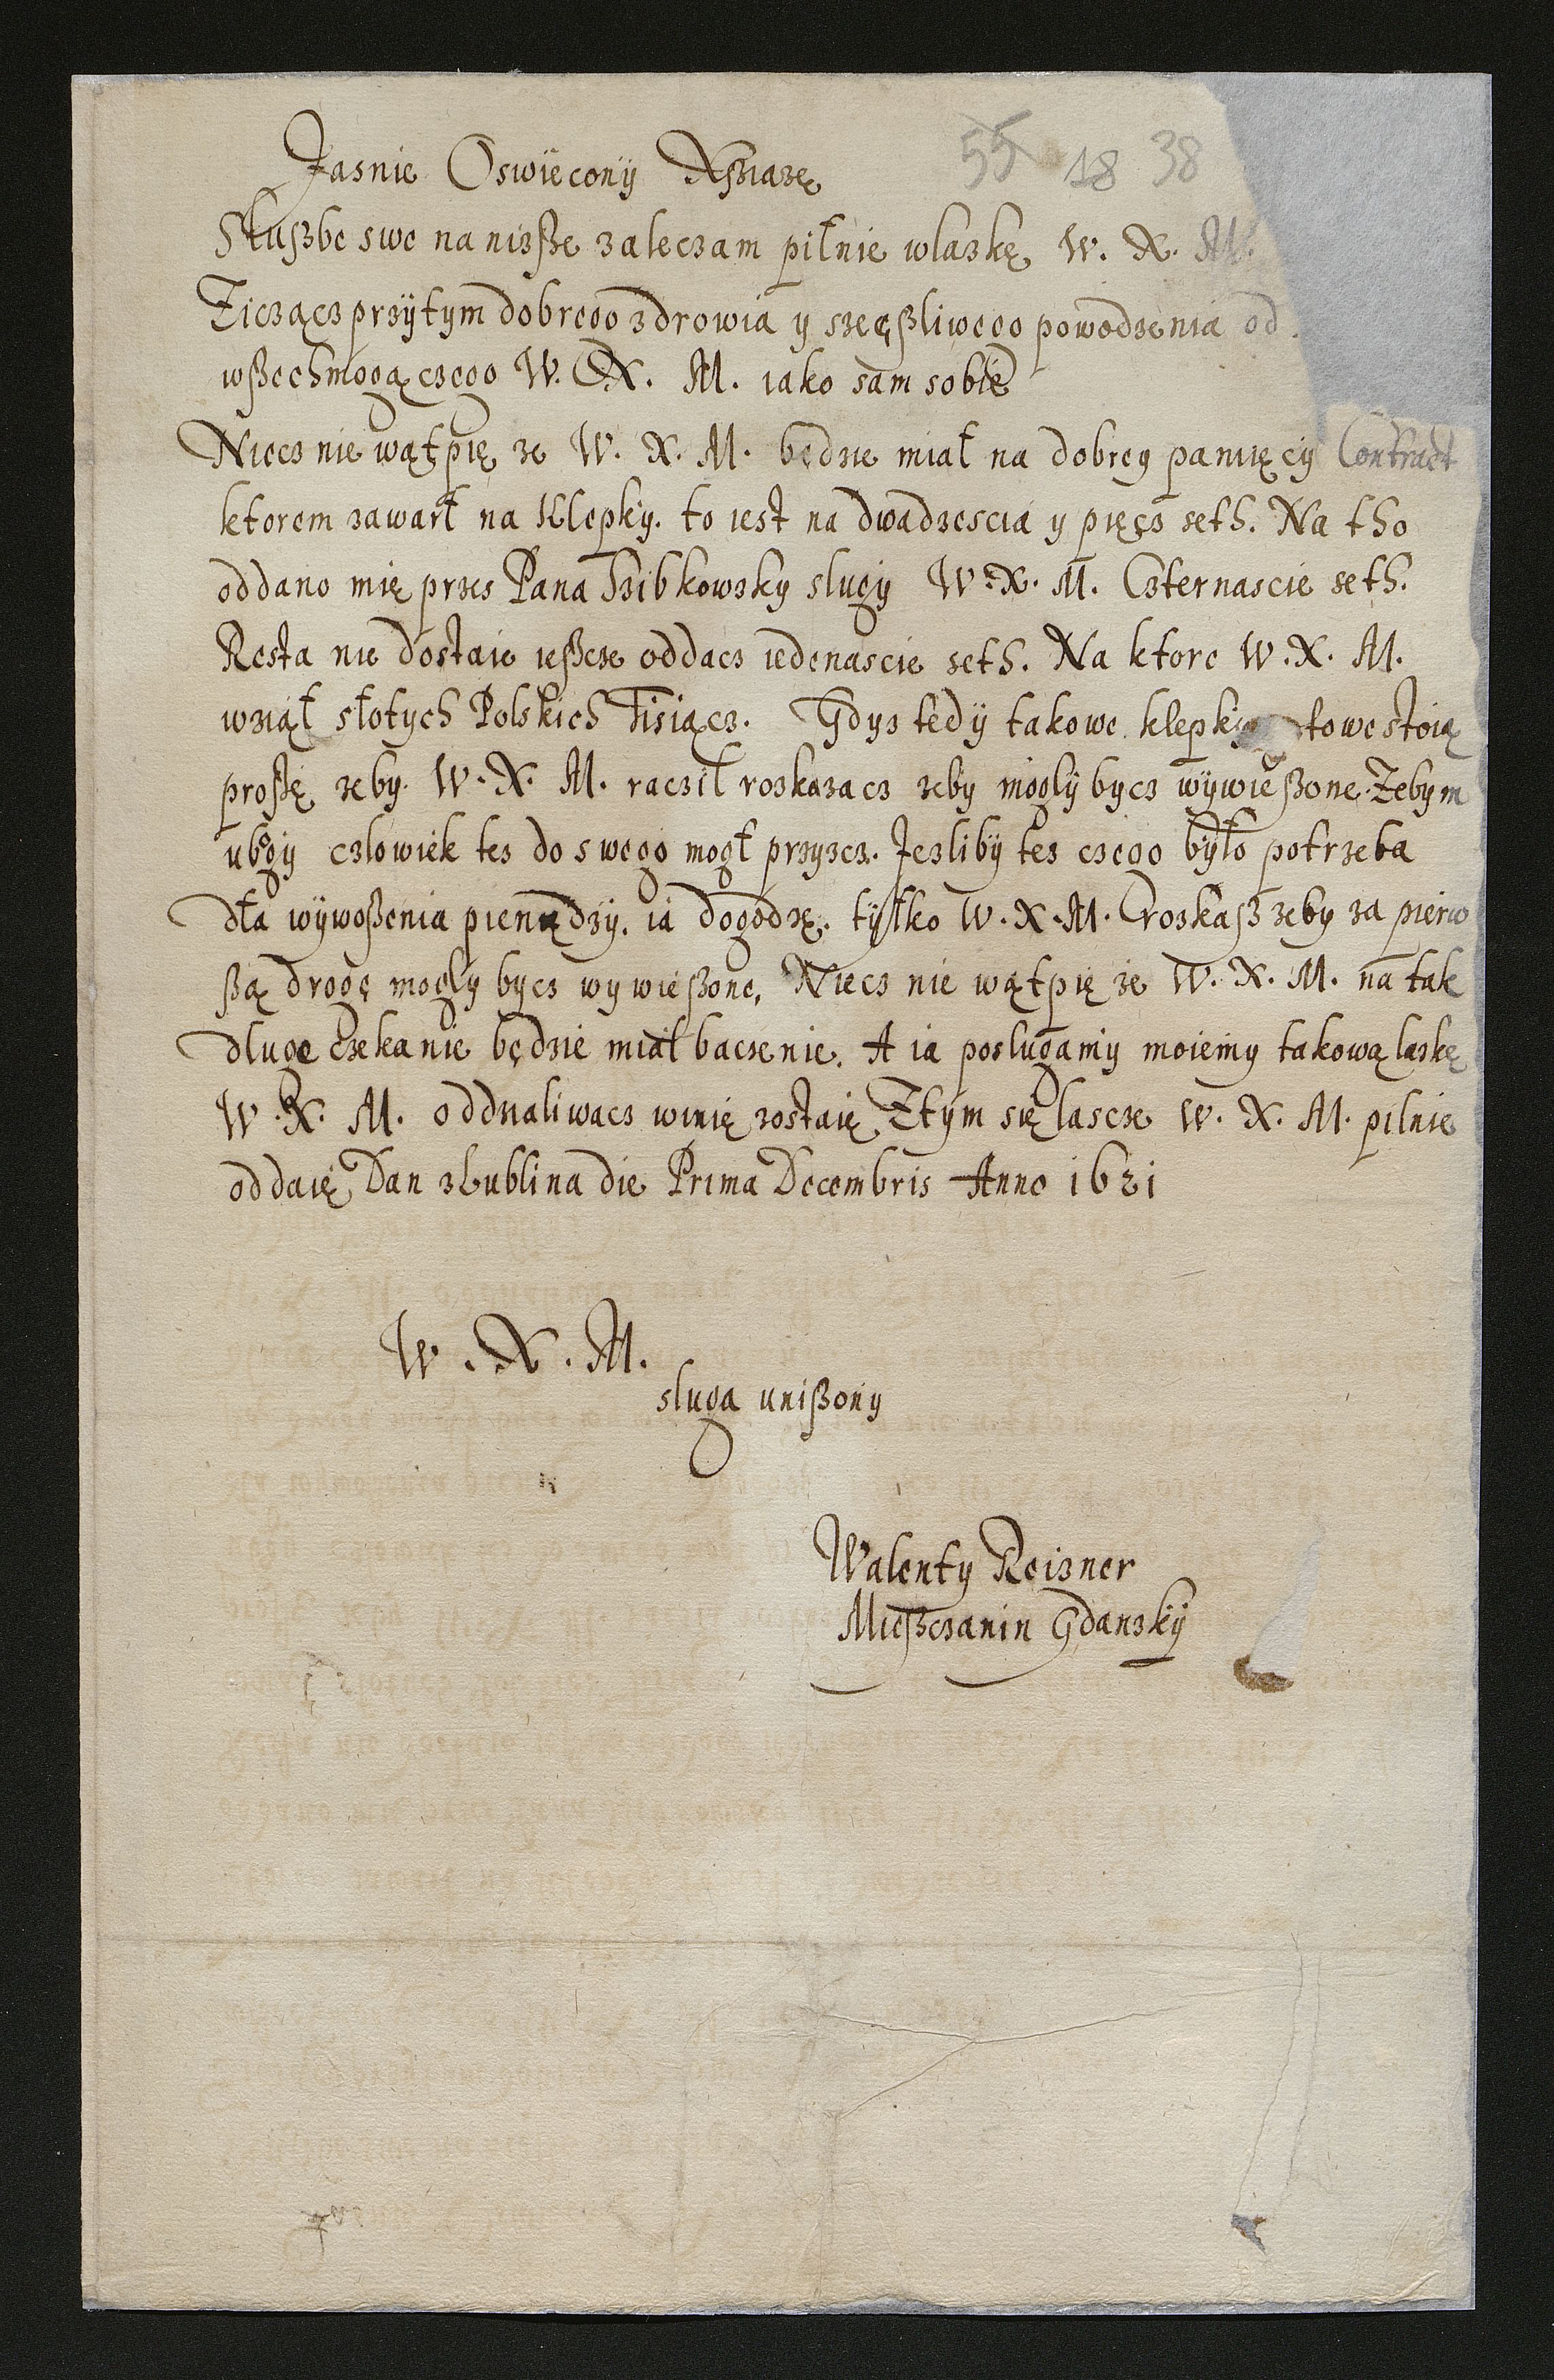 55 18 38
Jasnie Oswiecony Xziazę
Służbe swe nanizsze zaleczam pilnie wlaskę W. X. M.
Ziczącz przytym dobrego zdrowia y szcęßliwego powodzenia od
wßechmogączego W. X. M. iako sam sobie
Niecz nie wątpię ze W. X. M. będzie miał na dobrey pamięcy Contract
ktorem zawarł na Klepky. to iest na dwadzescia y pięcz seth. Na tho
oddano mię przes Pana slugy W. X. M. Czternascie seth.
Resta nie dostaie ießcze oddacz iedenascie seth. Na ktore W. X. M.
wział słotych Polskich Tisiącz. Gdys tedy takowe klepky towe stoią
proßę zeby W. X. M. raczil roskazacz zeby mogly bycz wywießone. Zebym
ubogy czlowiek tes do swego mogł przyscz. Jezliby tes czego było potrzeba
dła wywoßenia pienądzy. ia dogodzę. tyłko W. X. M. roskaß zeby za pierw
ßą drogę mogly bycz wywießone, Niecz nie wątpię ze W. X. M. na tak
dluge czekanie będzie miał baczenie. A ia poslugamy moiemy takową laskę
W. X. M. oddzaliwacz winię zostaię, Ztym się lascze W. X. M. pilnie
oddaię, Dan z Lublina die Prima Decembris Anno 1621
W. X. M.
sluga unißony
Walenty Reizner
Mießczanin Gdansky